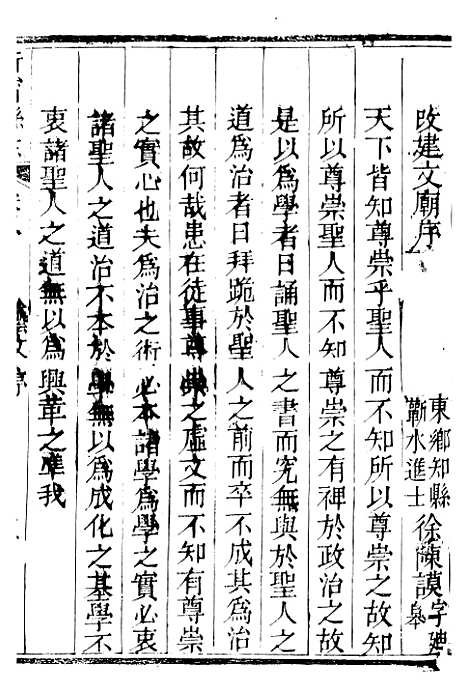 改建文廟序
東鄉知縣
蘄水進士
徐陳謨
字建
皋
天下皆知尊崇乎聖人而不知所以尊崇之故知
所以尊崇聖人而不知尊崇之有裨於政治之故
是以為學者日誦聖人之書而究無與於聖人之
道為治者日拜跪於聖人之前而卒不成其為治
其故何哉患在徒事尊崇之虛文而不知有尊崇
之實心也夫為治之術必本諸學為學之實必衷
諸聖人之道治不本於學無以為成化之基學不
衷諸聖人之道無以為興革之準我